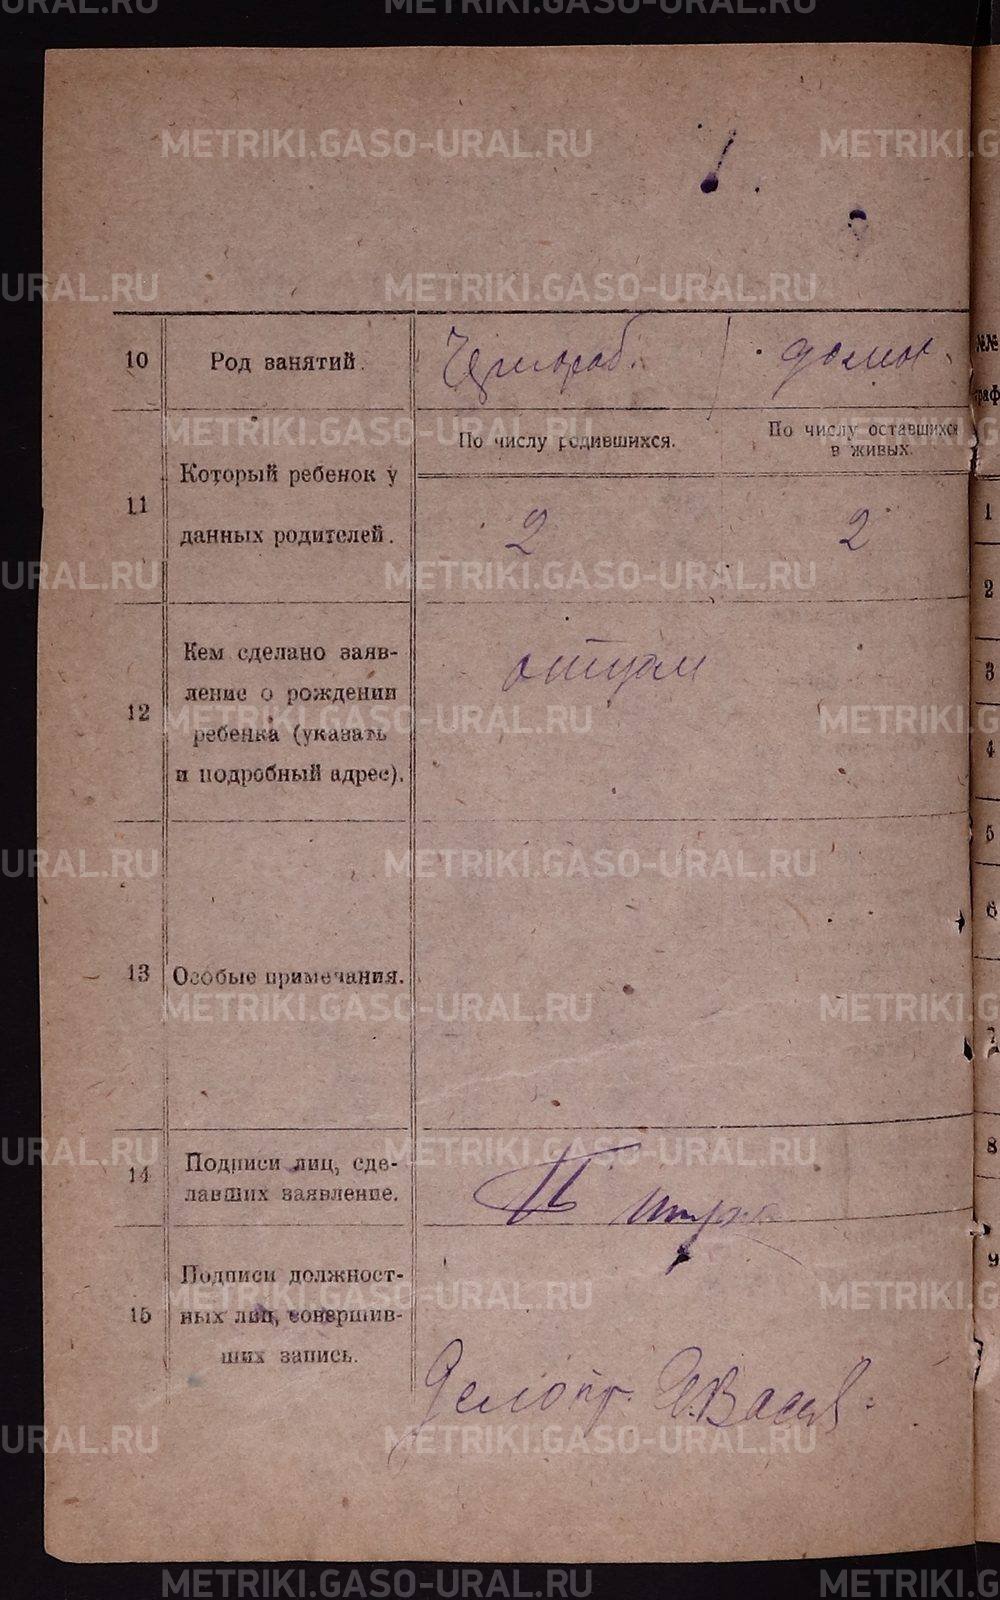 METRIKI.GASO-URAL.RU
10 Род занятий. домох
По числу родившихся. По числу оставшихся
в живых.
11 Который ребенок у
данных родителей. 2 2
12 Кем сделано заяв-
ление о рождении
ребенка (указать
и подробный адрес). отцом
13 Особые примечания.
14 Подписи лиц, сде-
лавших заявление.
15 Подписи должност-
ных лиц, совершив-
ших запись.
Делопр.
№№
граф
1
2
3
4
5
6
7
8
9